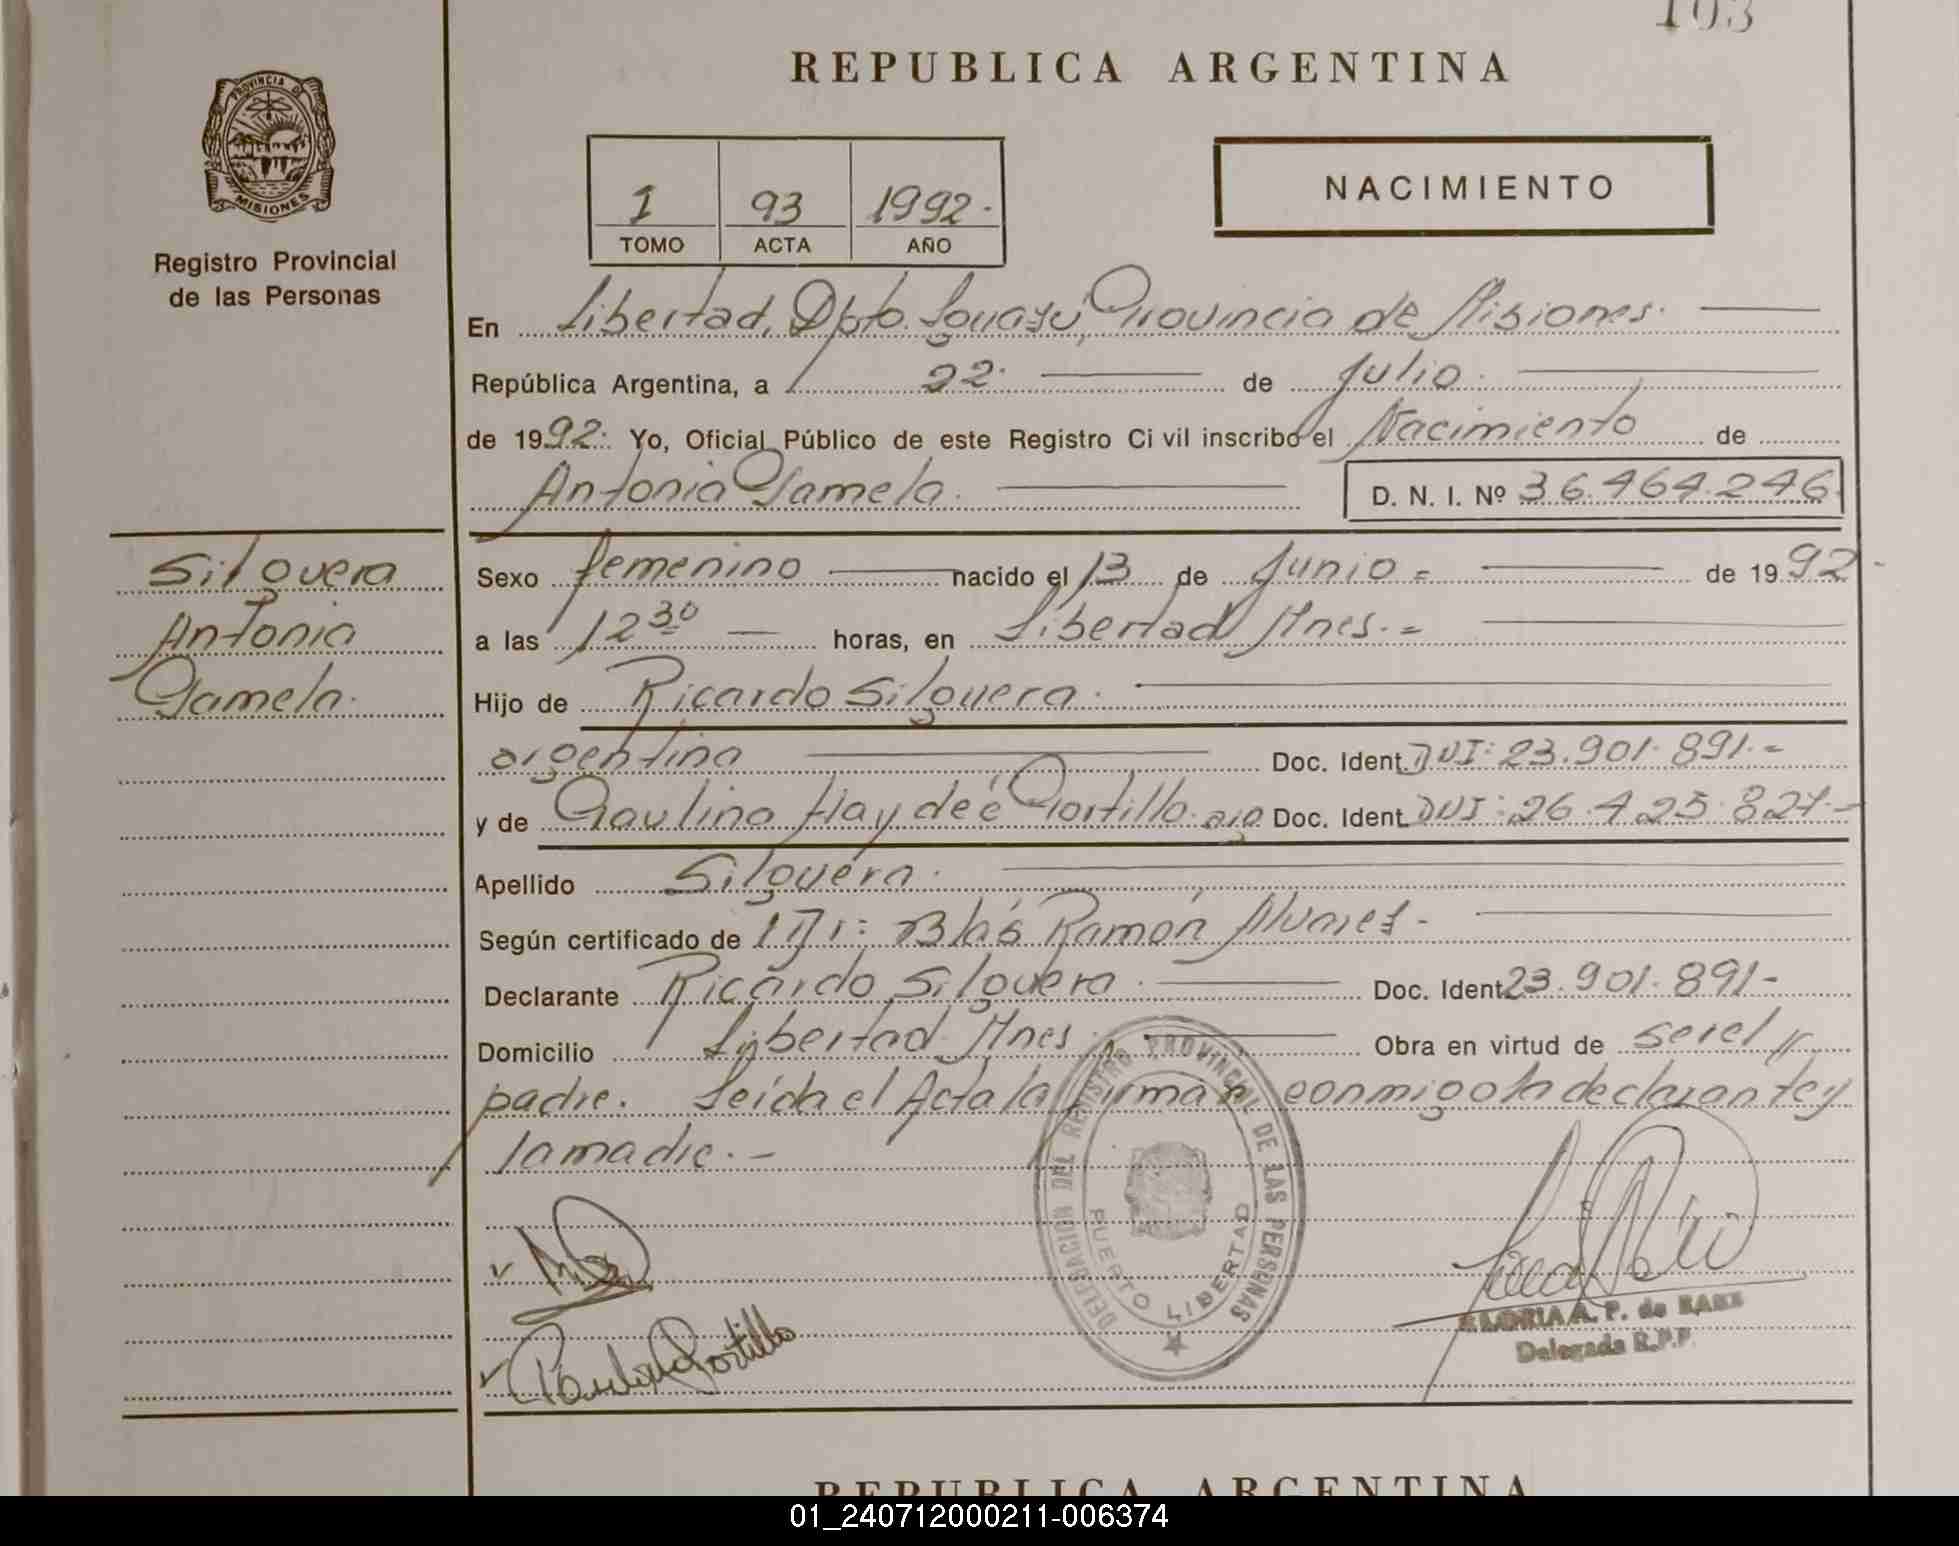 103
REPUBLICA ARGENTINA
PROVINCIA DE
MISIONES
Registro Provincial
de las Personas
1 93 1992.
TOMO ACTA AÑO
NACIMIENTO
En Libertad, Dpto. Iguazú, Provincia de Misiones.
República Argentina, a 22. de Julio.
de 1992. Yo, Oficial Público de este Registro Ci vil inscribo el Nacimiento de
Antonia Pamela. D. N. I. Nº 36.464.246.
Silguera
Antonia
Pamela.
Sexo femenino nacido el 13 de Junio = de 1992-
a las 12 30 horas, en Libertad Mnes.=
Hijo de Ricardo Silguera.
argentina Doc. Ident. DNI: 23.901.891.-
y de Paulina Haydeé Portillo. arg Doc. Ident. DNI: 26.425.827.-
Apellido Silguera.
Según certificado de Dr: Blás Ramón Nuñes-
Declarante Ricardo Silguera. Doc. Ident. 23.901.891-
Domicilio Libertad Mnes. Obra en virtud de ser el
padre. Leída el Acta la firman conmigo la declarante y
la madre.-
DELEGACION DEL REGISTRO PROVINCIAL DE LAS PERSONAS
PUERTO LIBERTAD
Paulina Portillo
GLORIA A. P. de
Delegada R.P.P.
REPUBLICA ARGENTINA
01_240712000211-006374